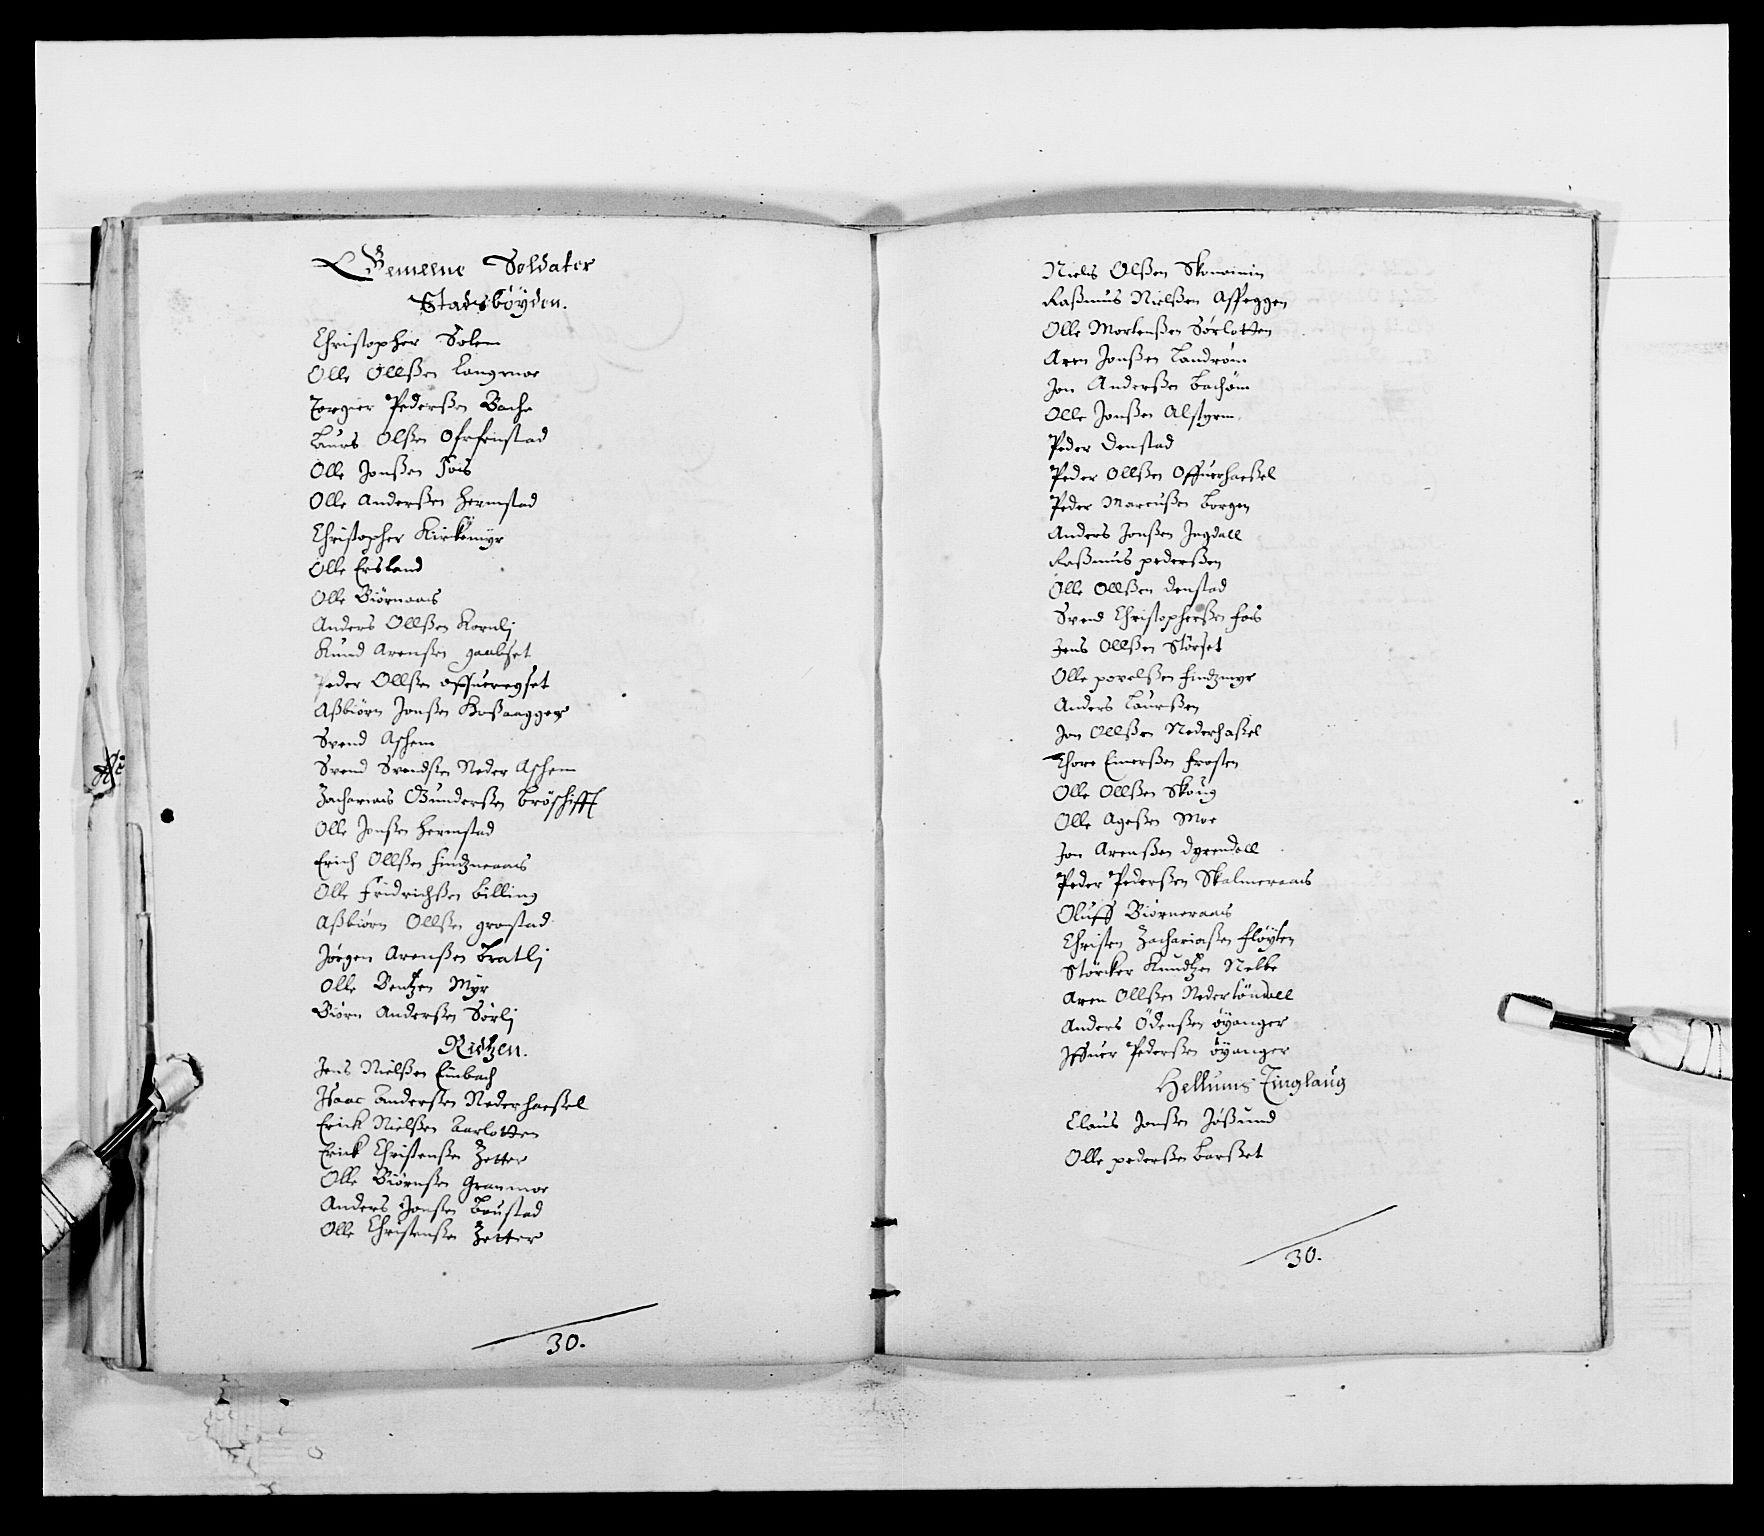 Gemeene Soldater
Stadsbøyden.
Christopher Solem
Olle Ollßen Langmoe
Torgier Pederßen Bache
Laurs Olßen
Olle Jonßen Fois
Olle Anderßen Hermstad
Christopher Kirkemyr
Olle Ersland
Olle Biørnaas
Anders Ollßen Kornlj
Knud Arenßen
Peder Ollßen
Aßbiørn Jonßen
Svend Aschem
Svend Svendßen Neder Aschem
Zacharias Gunderßen Brøschifft
Olle Jonßen Hermstad
Erich Ollßen Findzneraas
Olle Fridrichßen Billing
Aßbiørn Ollßen grostad
Jørgen Arenßen Bratlj
Olle Bentzen Myr
Biørn Anderßen Sørlj
Ridtzen.
Jens Nielßen Einbach
Isaac Anderßen Nederhaeßel
Erick Nielßen Aarlotten
Erick Christenßen Zetter
Olle Biørnßen Granmoe
Anders Jonßen Boustad
Olle Christenßen Zetter
30.
Niels Olßen
Raßmus Nielßen Aßeggen
Olle Mortenßen Sørlotten
Aren Jonßen Landrøm
Jon Anderßen Bachøm
Olle Jonßen Alstgrin
Peder Denstad
Peder Ollßen Offuerhaeßel
Peder Marcußen Borgen
Anders Jonßen Ingdall
Raßmus pederßen
Olle Ollßen Denstad
Svend Christopherßen Fois
Jens Ollßen Størset
Olle povelßen Findzmyr
Anders Laurßen
Jon Ollßen Nederhaßel
Thore Einerßen Frosten
Olle Ollßen Skoug
Olle Ageßen Moe
Jon Arenßen Dyrendall
Peder Pederßen Skalmeraas
Oluff Biørneraas
Christen Zachariaßen Fløyten
Størcker Knudtzen Nebbe
Aren Ollßen Nederløndall
Anders Ødenßen Øyanger
Iffuer Pederßen Øyanger
Heffuns Tinglaug
Claus Jonßen Jøßund
Olle pederßen Barßet
30.